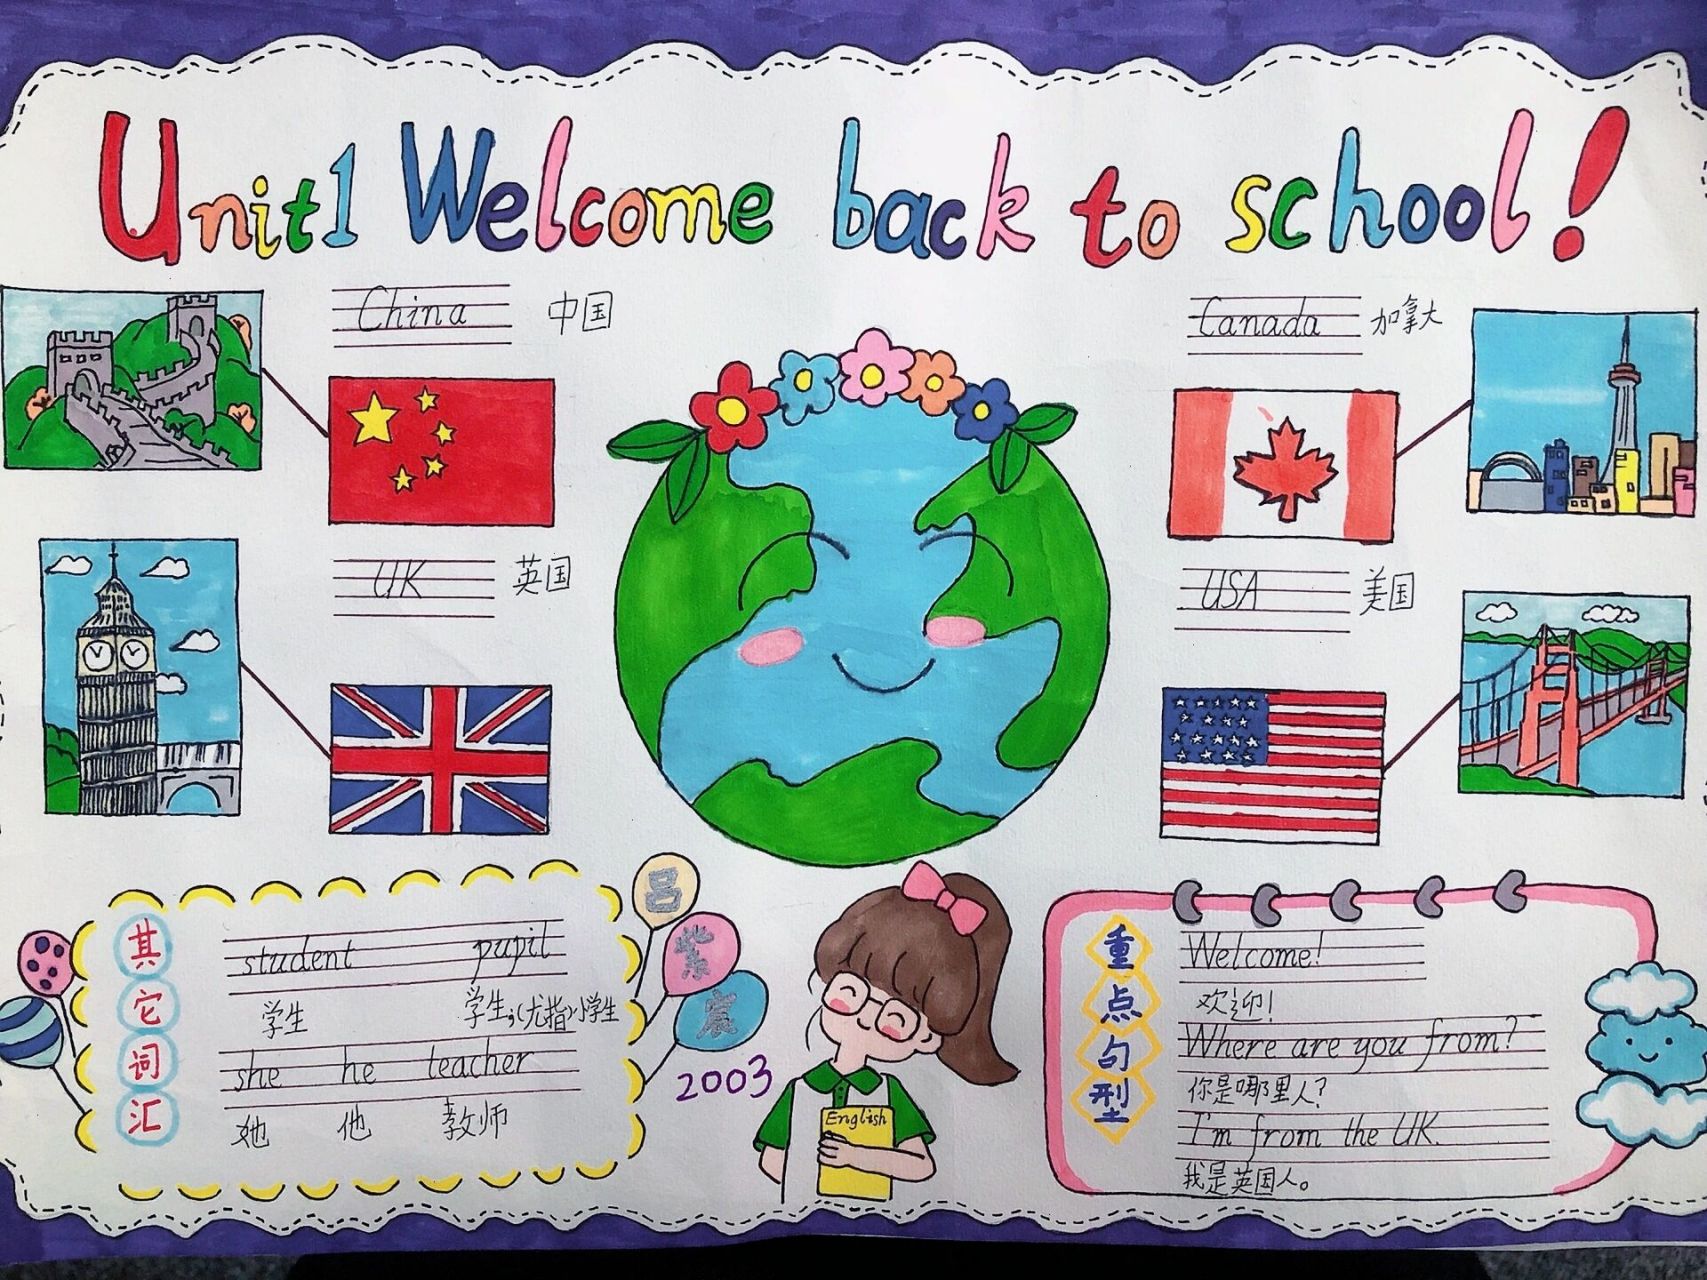 Unit1 Welcome back to school!
China 中国
Canada 加拿大
UK 英国
USA 美国
其它词汇
student pupil
学生 学生;(尤指)小学生
she he teacher
她 他 教师
吕
紫
宸
2003
English
重点句型
Welcome!
欢迎!
Where are you from?
你是哪里人?
I'm from the UK.
我是英国人。